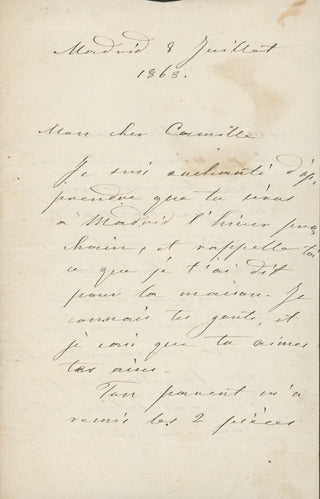 Madrid 8 Juillet
1868.
Mon cher Camille
Je suis enchanté d'ap-
prendre que tu seras
à Madrid l'hiver pro-
chain, et rappelle toi
ce que je t'ai dit
pour la maison. Je
connais tes gouts, et
je sais que tu aimes
tes aises.
Ton parent m'a
remis les 2 pièces